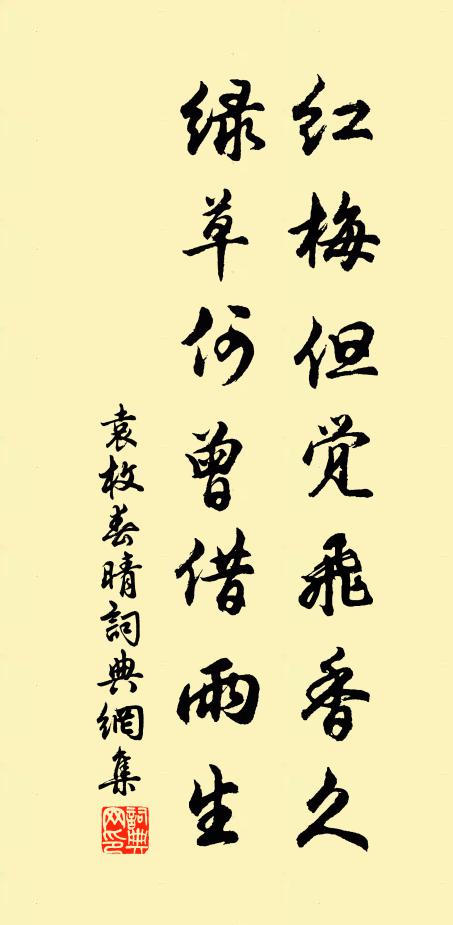 红梅但觉飛香久
绿草何曾借雨生
袁枚春晴詞典網集
詞典网印